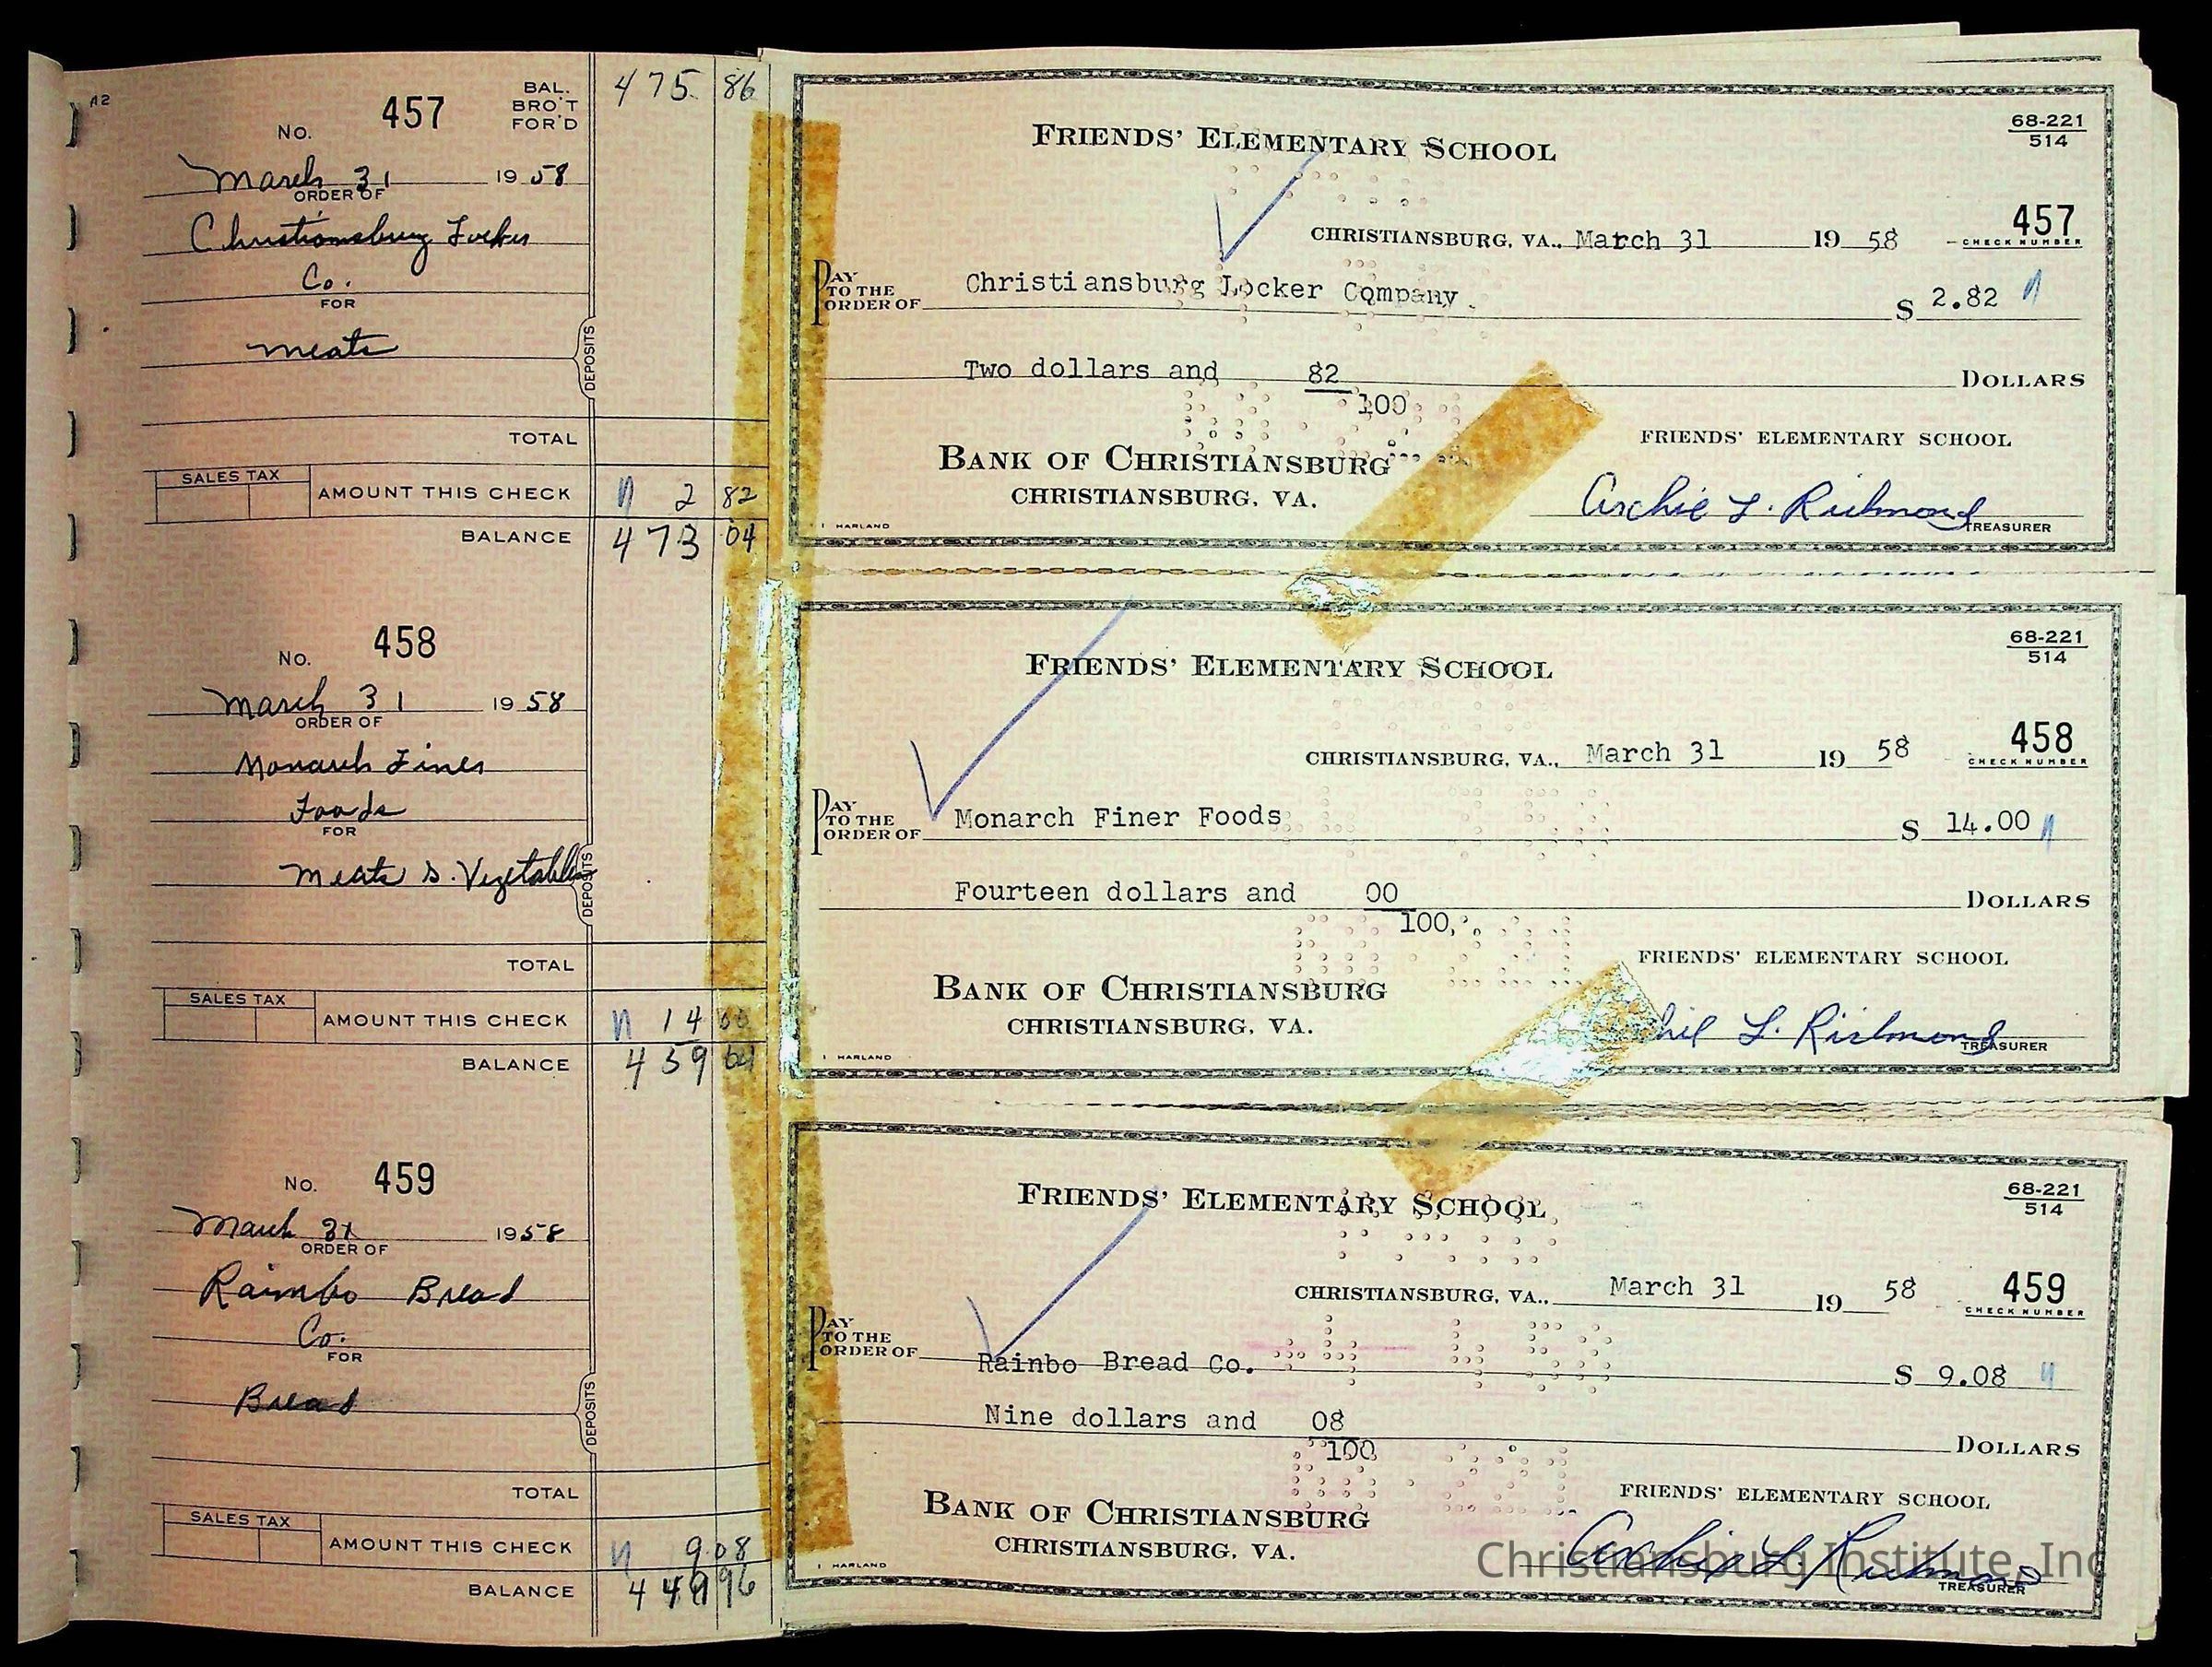 A2
No. 457
BAL. BRO'T FOR'D 475 86
March 31 1958
ORDER OF
Christiansburg Locker
Co.
FOR
meats
DEPOSITS
TOTAL
SALES TAX
AMOUNT THIS CHECK 2 82
BALANCE 473 04
FRIENDS' ELEMENTARY SCHOOL
68-221
514
CHRISTIANSBURG, VA., March 31 19 58
457
CHECK NUMBER
PAY TO THE ORDER OF Christiansburg Locker Company. $ 2.82
Two dollars and 82/100 DOLLARS
FRIENDS' ELEMENTARY SCHOOL
BANK OF CHRISTIANSBURG
CHRISTIANSBURG, VA.
Archie L. Richmond
TREASURER
HARLAND
No. 458
March 31 1958
ORDER OF
Monarch Finer
Foods
FOR
meats & Vegetables
DEPOSITS
TOTAL
SALES TAX
AMOUNT THIS CHECK 14 00
BALANCE 459 04
FRIENDS' ELEMENTARY SCHOOL
68-221
514
CHRISTIANSBURG, VA., March 31 19 58
458
CHECK NUMBER
PAY TO THE ORDER OF Monarch Finer Foods $ 14.00
Fourteen dollars and 00/100 DOLLARS
FRIENDS' ELEMENTARY SCHOOL
BANK OF CHRISTIANSBURG
CHRISTIANSBURG, VA.
L. Richmond
TREASURER
HARLAND
No. 459
March 31 1958
ORDER OF
Rainbo Bread
Co.
FOR
Bread
DEPOSITS
TOTAL
SALES TAX
AMOUNT THIS CHECK 9.08
BALANCE 449 96
FRIENDS' ELEMENTARY SCHOOL
68-221
514
CHRISTIANSBURG, VA., March 31 19 58
459
CHECK NUMBER
PAY TO THE ORDER OF Rainbo Bread Co. $ 9.08
Nine dollars and 08/100 DOLLARS
FRIENDS' ELEMENTARY SCHOOL
BANK OF CHRISTIANSBURG
CHRISTIANSBURG, VA.
Archie L. Richmond
TREASURER
HARLAND
Christiansburg Institute, Inc